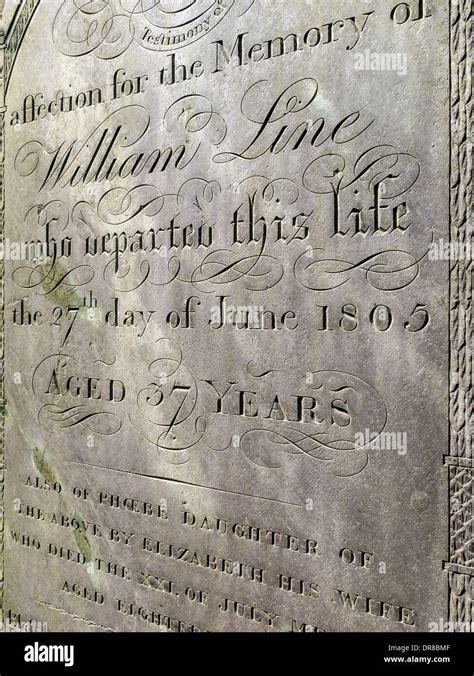 Testimony of
affection for the Memory of
William Line
who departed this life
the 27th day of June 1805
AGED 37 YEARS
ALSO OF PHŒBE DAUGHTER OF
THE ABOVE BY ELIZABETH HIS WIFE
WHO DIED THE XXI. OF JULY
AGED
alamy stock photo
DR8BMF
www.alamy.com